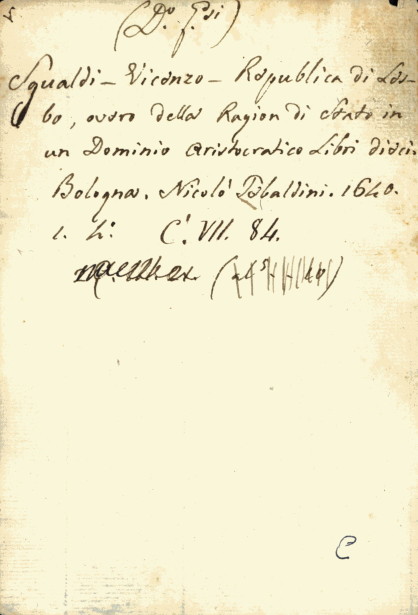 (D.º G.si)
Sgualdi – Vicenzo – Republica di Les-
bo, overo della Ragion di Stato in
un Dominio aristocratico Libri dieci.
Bologna. Nicolò Tebaldini. 1640.
1. 4.º C. VII. 84.
C